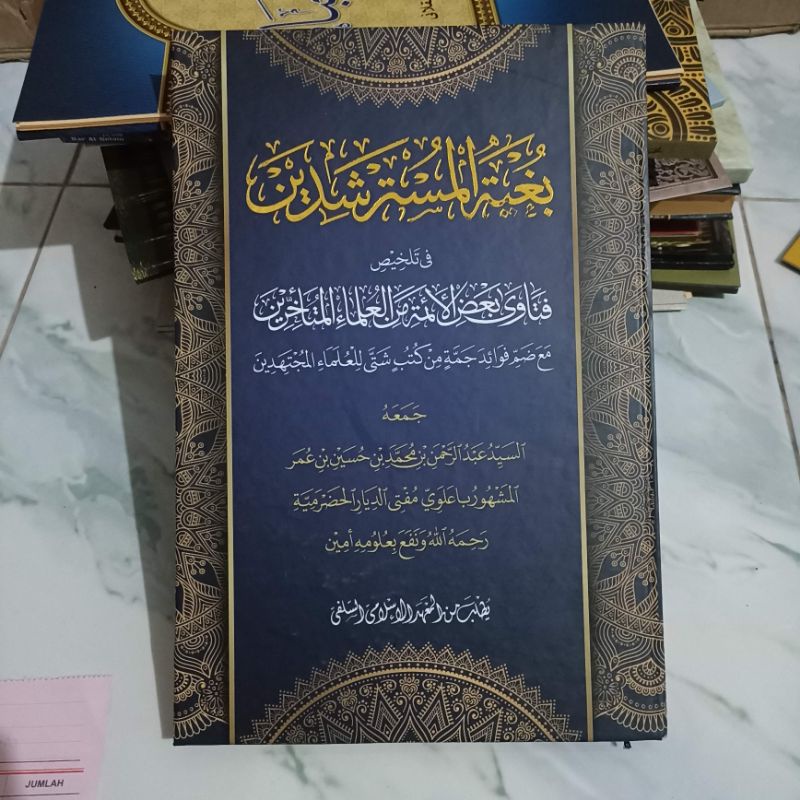 بُغْيَةُ الْمُسْتَرْشِدِيْنَ
فِي تَلْخِيْصِ
فَتَاوَى بَعْضِ الْأَئِمَّةِ مِنَ الْعُلَمَاءِ الْمُتَأَخِّرِيْنَ
مَعَ ضَمِّ فَوَائِدَ جَمَّةٍ مِنْ كُتُبٍ شَتَّى لِلْعُلَمَاءِ الْمُجْتَهِدِيْنَ
جَمَعَهُ
السَّيِّدُ عَبْدُ الرَّحْمٰنِ بْنِ مُحَمَّدِ بْنِ حُسَيْنِ بْنِ عُمَرَ
الْمَشْهُوْرُ بِاعَلَوِيِّ مُفْتِى الدِّيَارِ الْحَضْرَمِيَّةِ
رَحِمَهُ اللّٰهُ وَنَفَعَ بِعُلُوْمِهِ أٰمِيْن
يُطْلَبُ مِنَ الْمَعْهَدِ الْإِسْلَامِى السَّلَفِى
JUMLAH